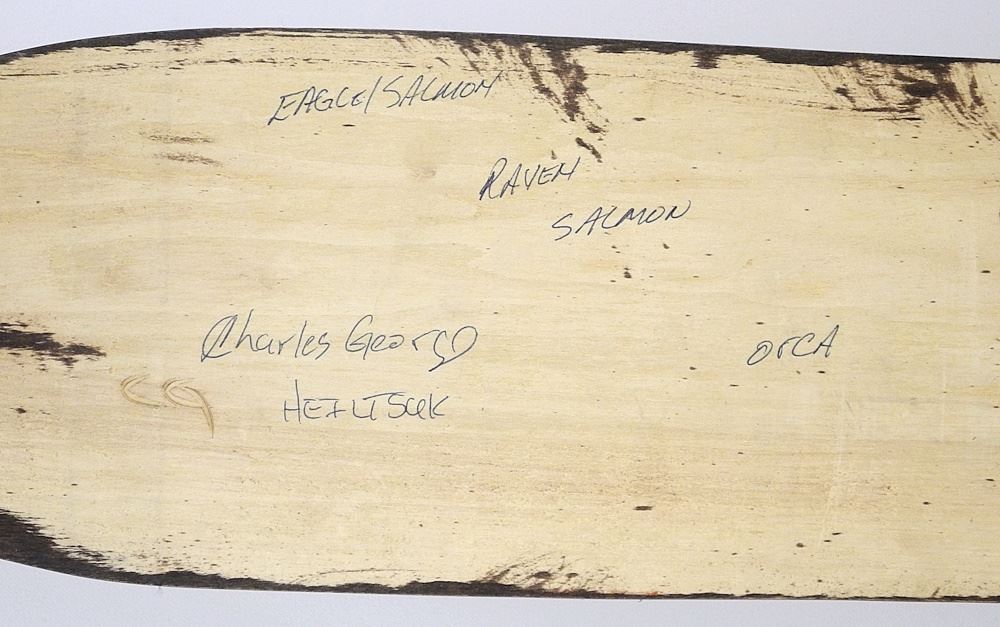 EAGLE/SALMON
RAVEN
SALMON
Charles George
ORCA
HEILTSUK
CG